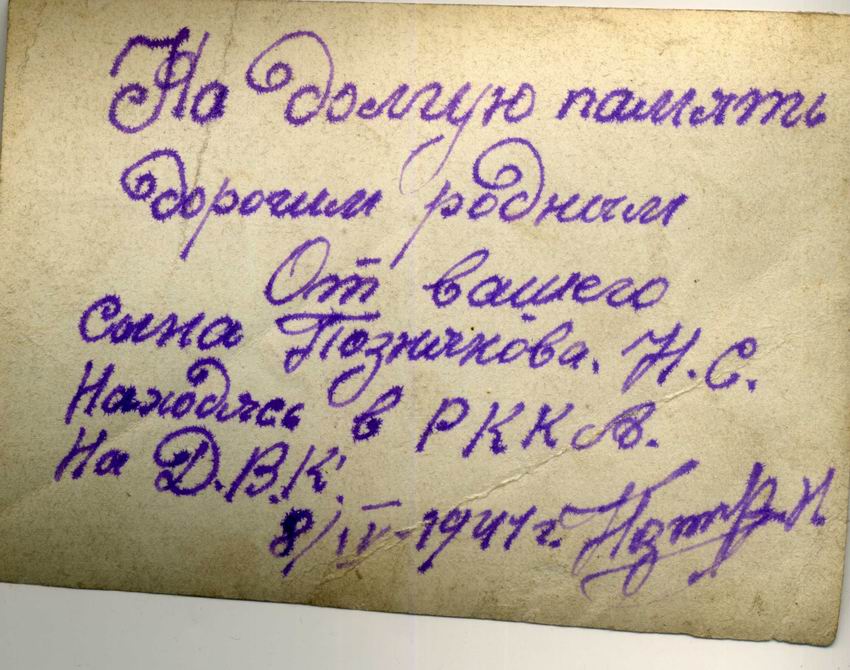 На долгую память
дорогим родным
От вашего
Сына Познякова. Н. С.
Находясь в РККА.
На Д.В.К.
8/IV-1941 г.